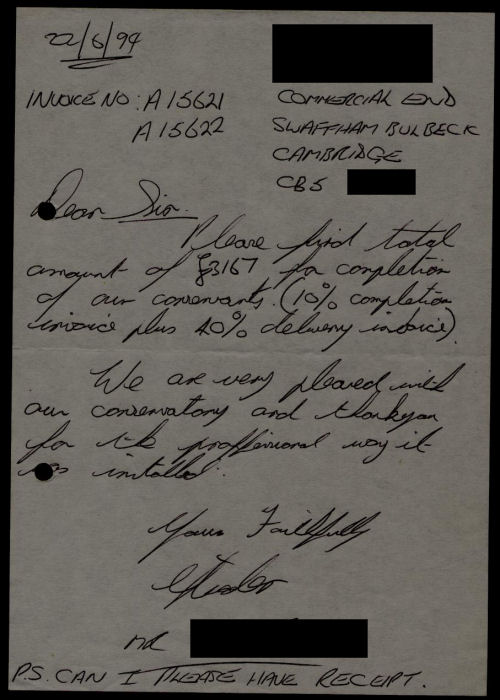 22/6/94
INVOICE NO: A15621
A15622
COMMERCIAL END
SWAFFHAM BULBECK
CAMBRIDGE
CB5
Dear Sir.
Please find total
amount of £3167 for completion
of our conservatory. (10% completion
invoice plus 40% delivery invoice).
We are very pleased with
our conservatory and thankyou
for the proffesional way it
was installed.
Yours Faithfully
MR
P.S. CAN I PLEASE HAVE RECEIPT.